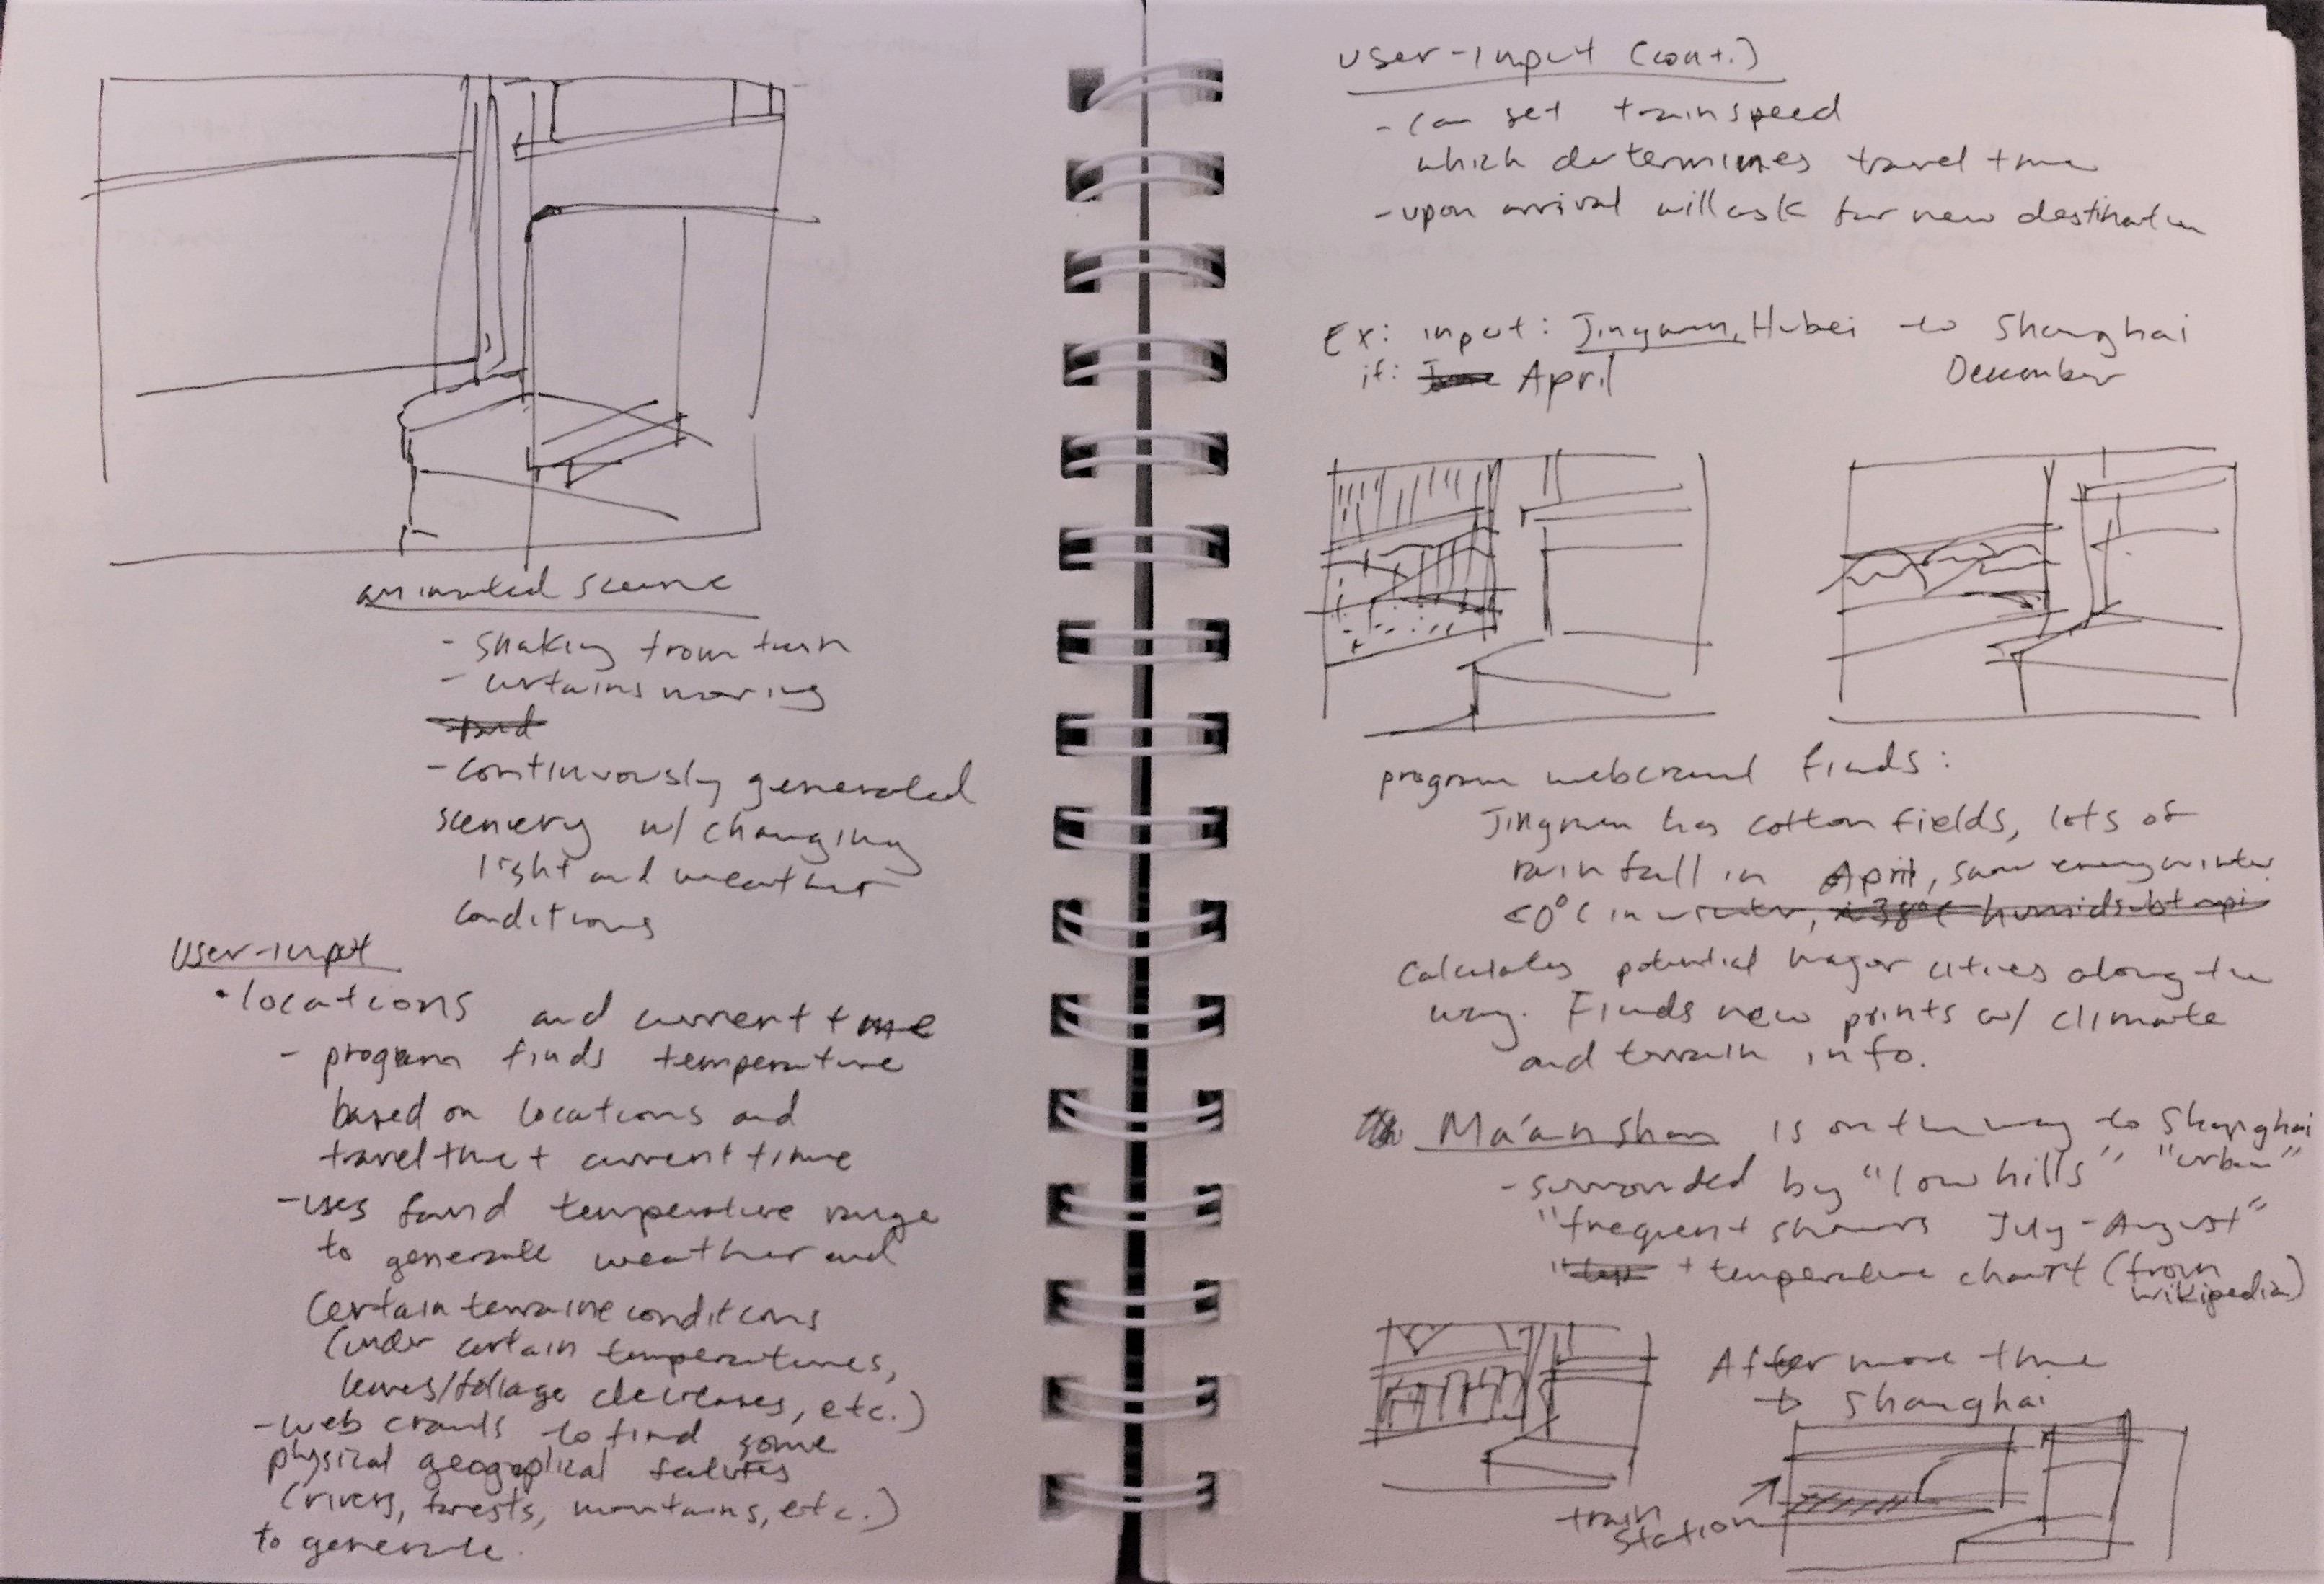 animated scene
- shaking from train
- curtains moving
- continuously generated
scenery w/ changing
light and weather
conditions
User-input
• locations and current time
- program finds temperature
based on locations and
travel time + current time
- uses found temperature range
to generate weather and
certain terraine conditions
(under certain temperatures,
leaves/foliage decreases, etc.)
- web crawls to find some
physical geographical features
(rivers, forests, mountains, etc.)
to generate.
User-input (cont.)
- can set train speed
which determines travel time
- upon arrival will ask for new destination
Ex: input: Jingmen, Hubei to Shanghai
if: June April December
program webcrawl finds:
Jingmen has cotton fields, lots of
rainfall in April, snow every winter
<0°C in winter, humid subtropi
Calculates potential major cities along the
way. Finds new points w/ climate
and terrain info.
Ma'anshan is on the way to Shanghai
- surronded by "low hills" "urban"
"frequent showers July-August"
+ temperature chart (from
wikipedia)
After more time
→ Shanghai
train
station